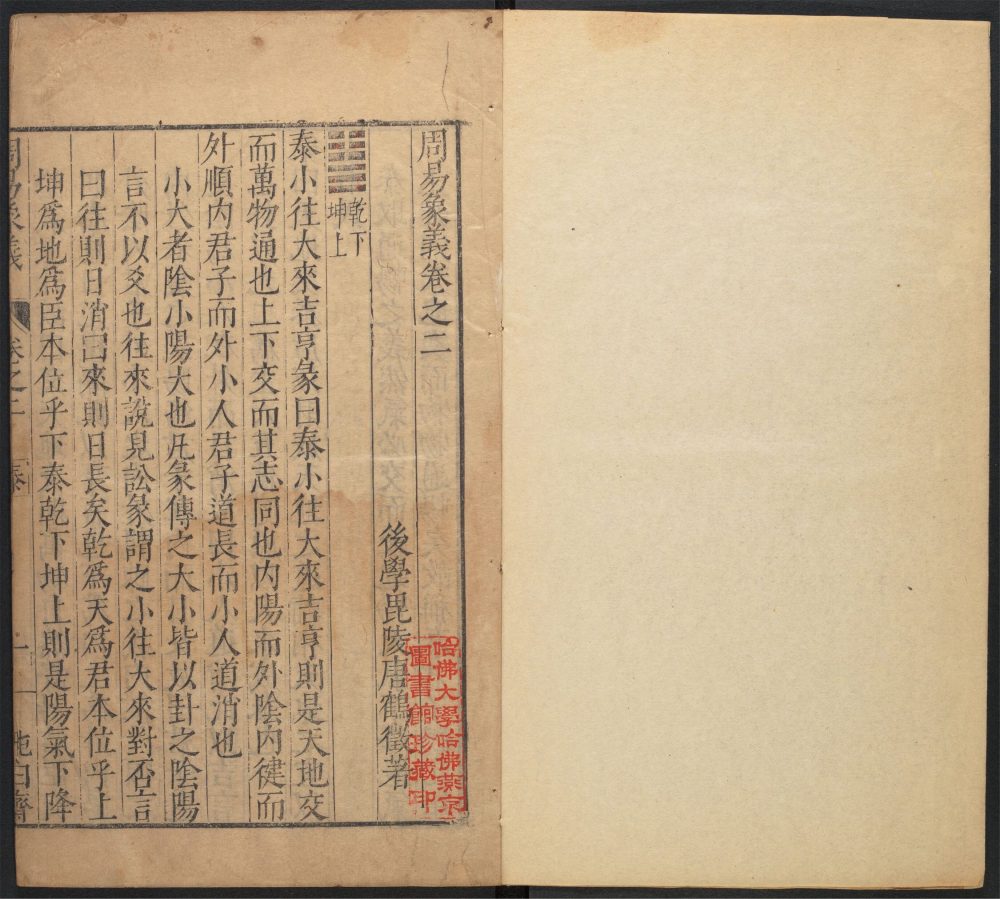 周易象義卷之二
後學毘陵唐鶴徵著
乾下
坤上
泰小往大來吉亨彖曰泰小往大來吉亨則是天地交
而萬物通也上下交而其志同也内陽而外陰内健而
外順内君子而外小人君子道長而小人道消也
小大者陰小陽大也凡彖傳之大小皆以卦之陰陽
言不以爻也往來說見訟彖謂之小往大來對否言
曰往則日消曰來則日長矣乾爲天爲君本位乎上
坤爲地爲臣本位乎下泰乾下坤上則是陽氣下降
周易象義
卷之二
泰
一
哈佛大學哈佛燕京
圖書館珍藏印